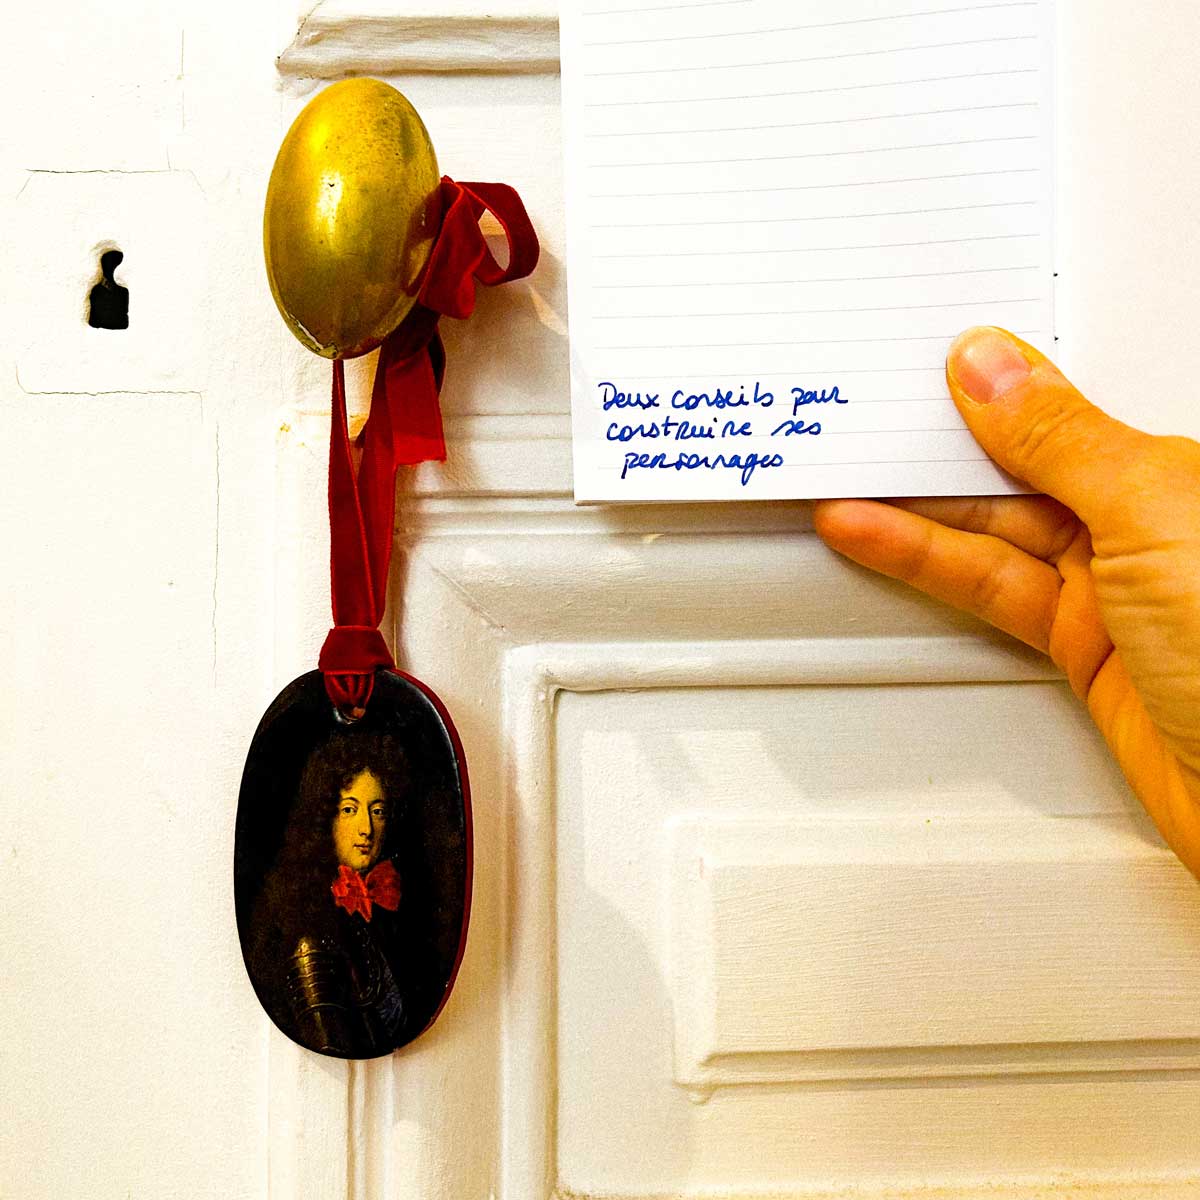 Deux conseils pour
construire ses
personnages